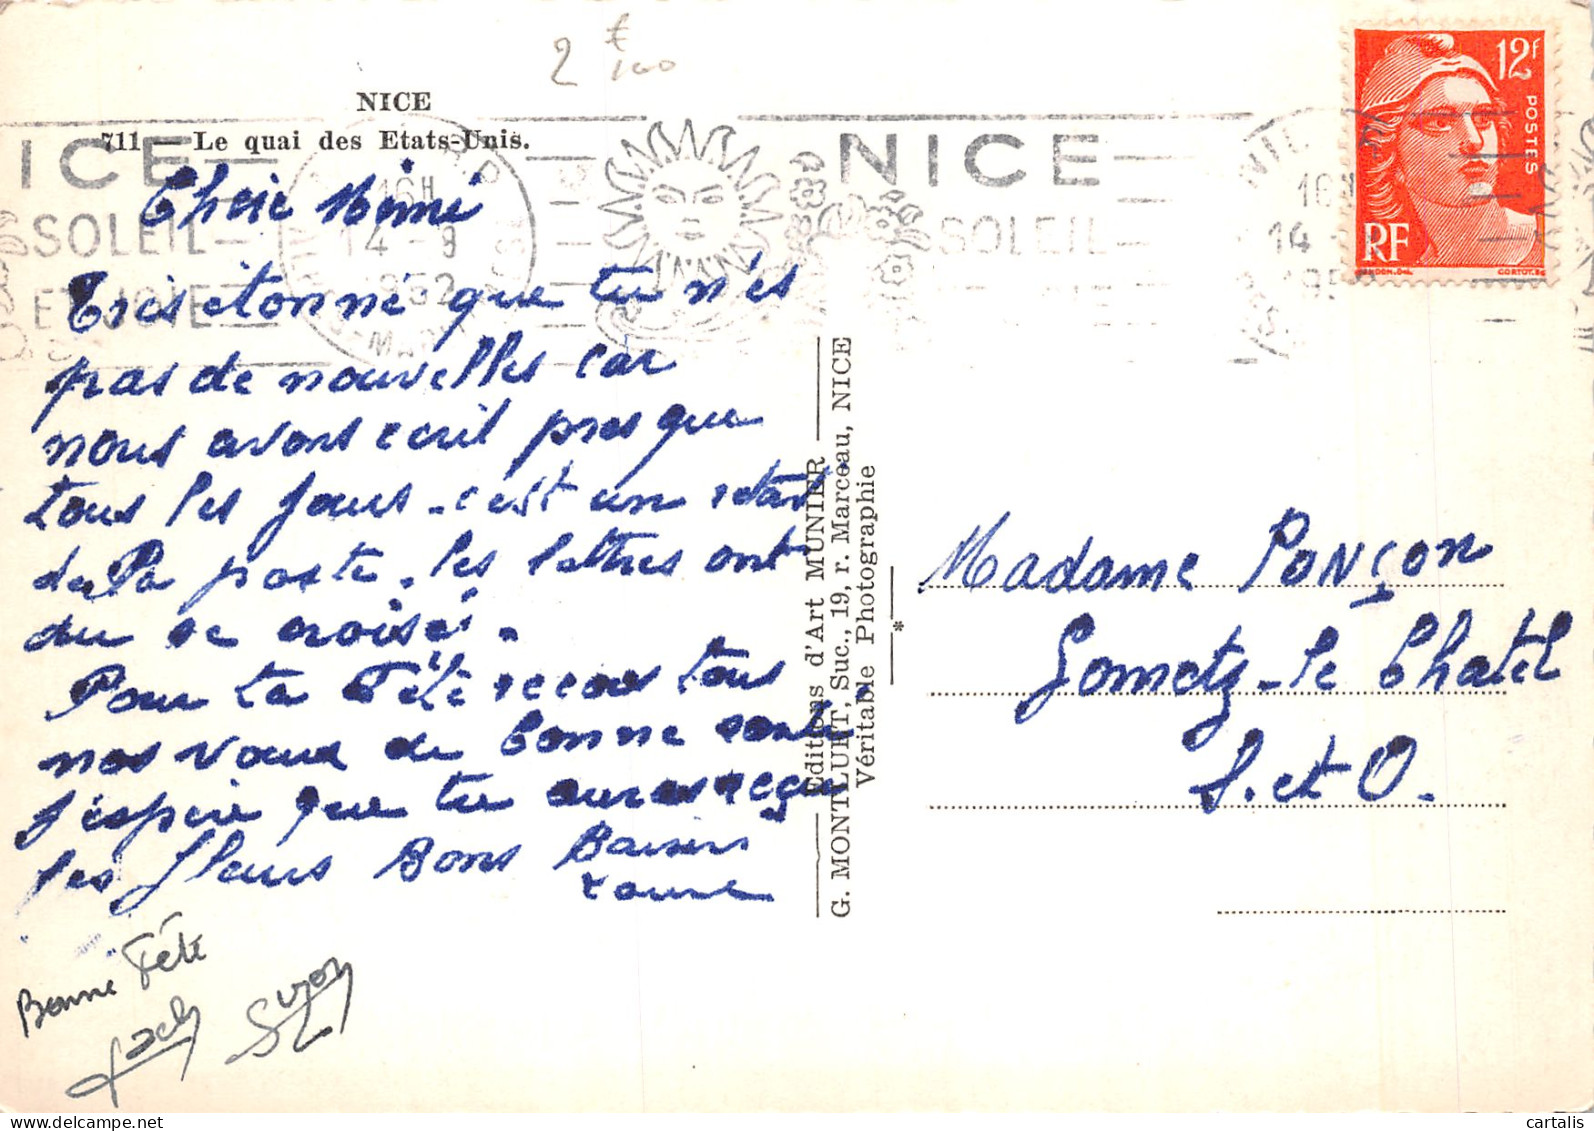 2 €
100
NICE
711 - Le quai des Etats-Unis.
NICE
SOLEIL
ET JOIE
16H
14-9
1952
NICE
SOLEIL
ET JOIE
16H
14
195
12F
POSTES
RF
GANDON. Del.
CORTOT. Sc
Chere Mémé
Tres étonné que tu n'es
pas de nouvelles car
nous avons ecrit presque
tous les jours - c'est un retard
de la poste. les lettres ont
du se croisés.
Pour ta Fête recois tous
nos vœux de bonne santé
J'espère que tu auras reçu
les fleurs Bons Baisers
Bonne Fête
Jacky Suzon
Editions d'Art MUNIER
G. MONTLUET, Suc., 19, r. Marceau, NICE
Véritable Photographie
*
Madame PONÇON
Gometz-le Chatel
S. et O.
cartalis.com